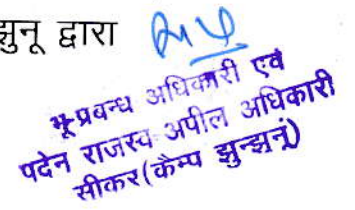 झुनू द्वारा
भू प्रबन्ध अधिकारी एवं
पदेन राजस्व अपील अधिकारी
सीकर(कैम्प झुन्झुनूं)